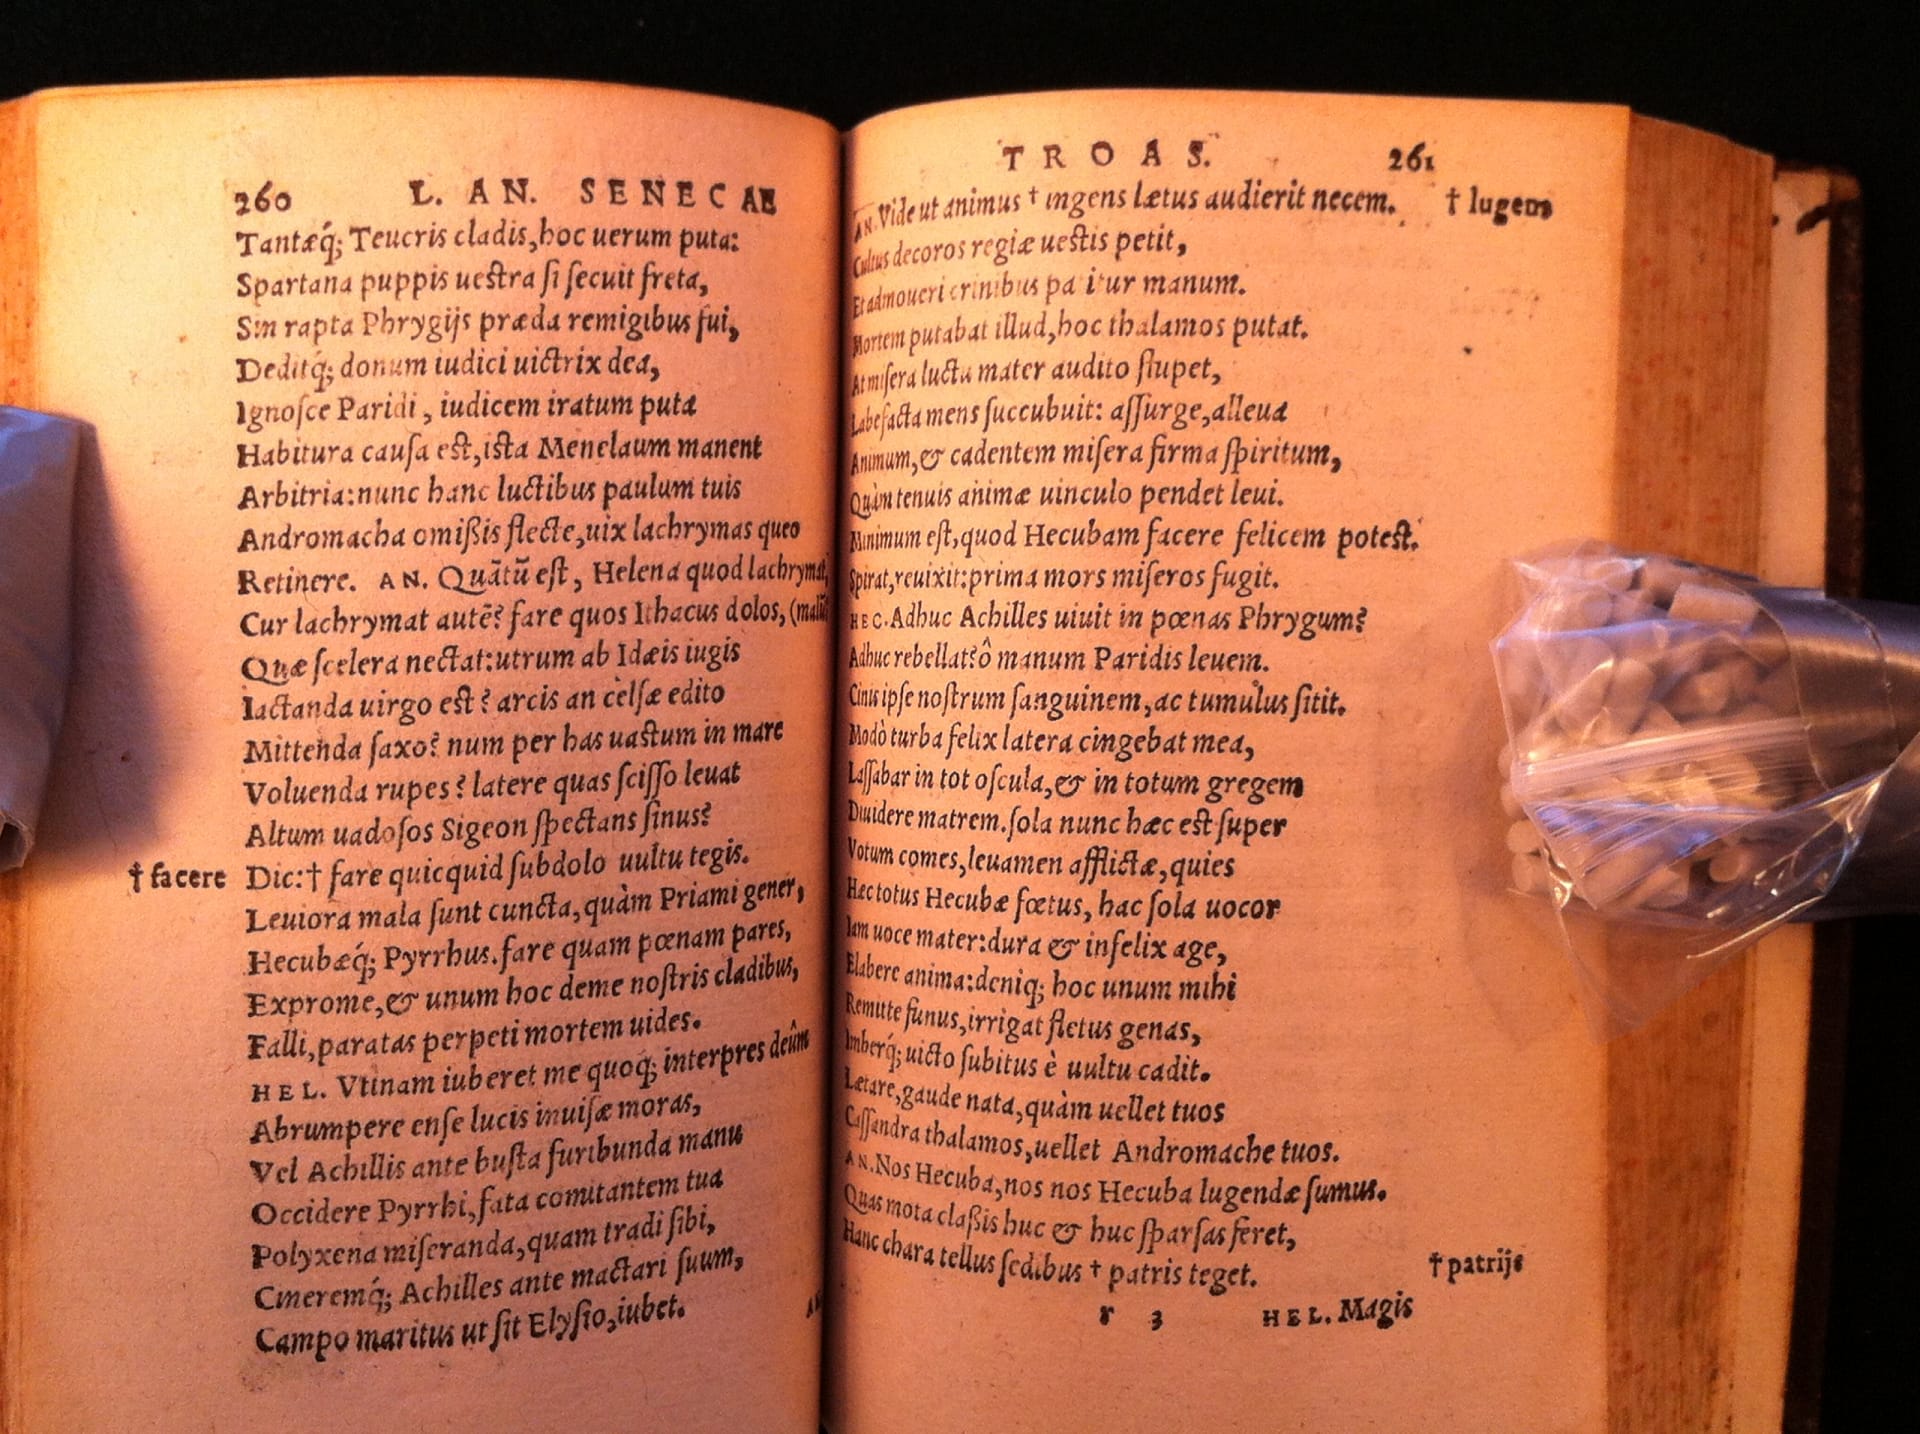 260 L. AN. SENECAE
Tantæq́; Teucris cladis, hoc uerum puta:
Spartana puppis uestra si secuit freta,
Sin rapta Phrygijs præda remigibus fui,
Deditq́; donum iudici uictrix dea,
Ignosce Paridi, iudicem iratum puta
Habitura causa est, ista Menelaum manent
Arbitria: nunc hanc luctibus paulum tuis
Andromacha omißis flecte, uix lachrymas queo
Retinere. AN. Quātū est, Helena quod lachrymat,
Cur lachrymat autē? fare quos Ithacus dolos, (malū?
Quæ scelera nectat: utrum ab Idæis iugis
Iactanda uirgo est? arcis an celsæ edito
Mittenda saxo? num per has uastum in mare
Voluenda rupes? latere quas scisso leuat
Altum uadosos Sigeon spectans sinus?
† facere Dic: † fare quicquid subdolo uultu tegis.
Leuiora mala sunt cuncta, quàm Priami gener,
Hecubæq́; Pyrrhus. fare quam pœnam pares,
Exprome, & unum hoc deme nostris cladibus,
Falli, paratas perpeti mortem uides.
HEL. Vtinam iuberet me quoq́; interpres deûm
Abrumpere ense lucis inuisæ moras,
Vel Achillis ante busta furibunda manu
Occidere Pyrrhi, fata comitantem tua
Polyxena miseranda, quam tradi sibi,
Cineremq́; Achilles ante mactari suum,
Campo maritus ut sit Elysio, iubet.
AN.
TROAS. 261
AN. Vide ut animus † ingens lætus audierit necem. † lugens
Cultus decoros regiæ uestis petit,
Et admoueri crinibus patitur manum.
Mortem putabat illud, hoc thalamos putat.
At misera luctu mater audito stupet,
Labefacta mens succubuit: assurge, alleua
Animum, & cadentem misera firma spiritum,
Quàm tenuis animæ uinculo pendet leui.
Minimum est, quod Hecubam facere felicem potest.
Spirat, reuixit: prima mors miseros fugit.
HEC. Adhuc Achilles uiuit in pœnas Phrygum?
Adhuc rebellat? ô manum Paridis leuem.
Cinis ipse nostrum sanguinem, ac tumulus sitit.
Modò turba felix latera cingebat mea,
Lassabar in tot oscula, & in totum gregem
Diuidere matrem. sola nunc hæc est super
Votum comes, leuamen afflictæ, quies
Hæc totus Hecubæ fœtus, hac sola uocor
Iam uoce mater: dura & infelix age,
Elabere anima: deniq; hoc unum mihi
Remitte funus, irrigat fletus genas,
Imberq́; uicto subitus è uultu cadit.
Lætare, gaude nata, quàm uellet tuos
Cassandra thalamos, uellet Andromache tuos.
AN. Nos Hecuba, nos nos Hecuba lugendæ sumus.
Quas mota claßis huc & huc sparsas feret,
Hanc chara tellus sedibus † patris teget. † patrijs
r 3 HEL. Magis